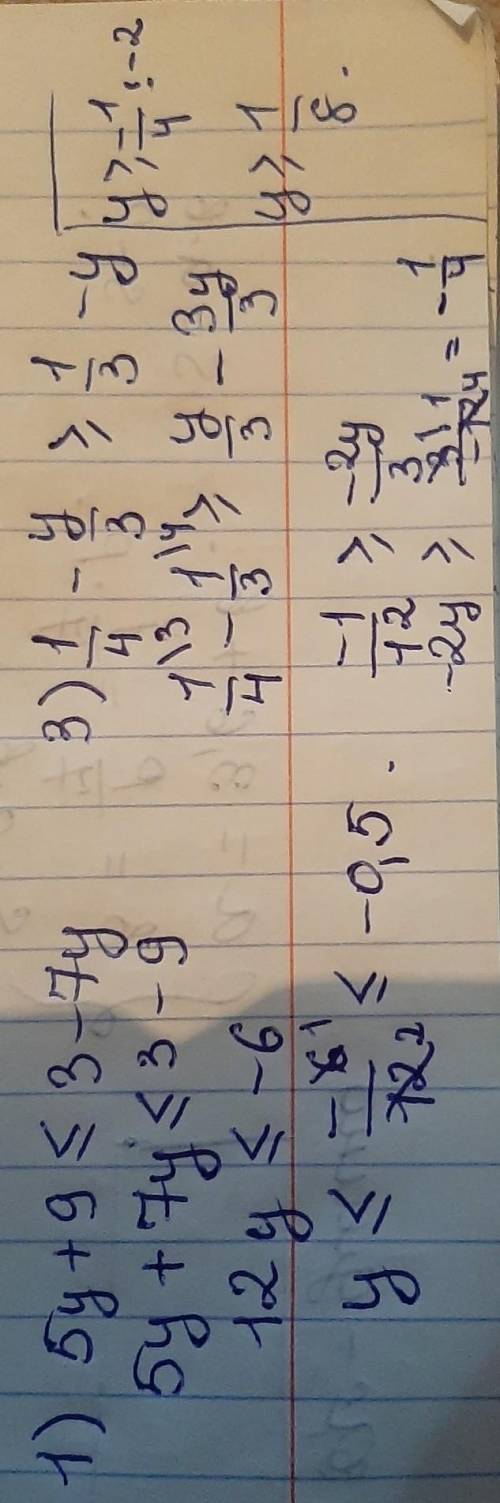 1) 5y + 9 ≤ 3 - 7y
5y + 7y ≤ 3 - 9
12y ≤ -6
y ≤ -6/12 ≤ -0,5.
3) 1/4 - y/3 ≥ 1/3 - y
1\3/4 - 1\4/3 ≥ y/3 - 3y/3
-1/12 ≥ -2y/3
-2y ≥ 3\1/-12y = -1/4
y ≥ -1/4 : -2
y ≥ 1/8.